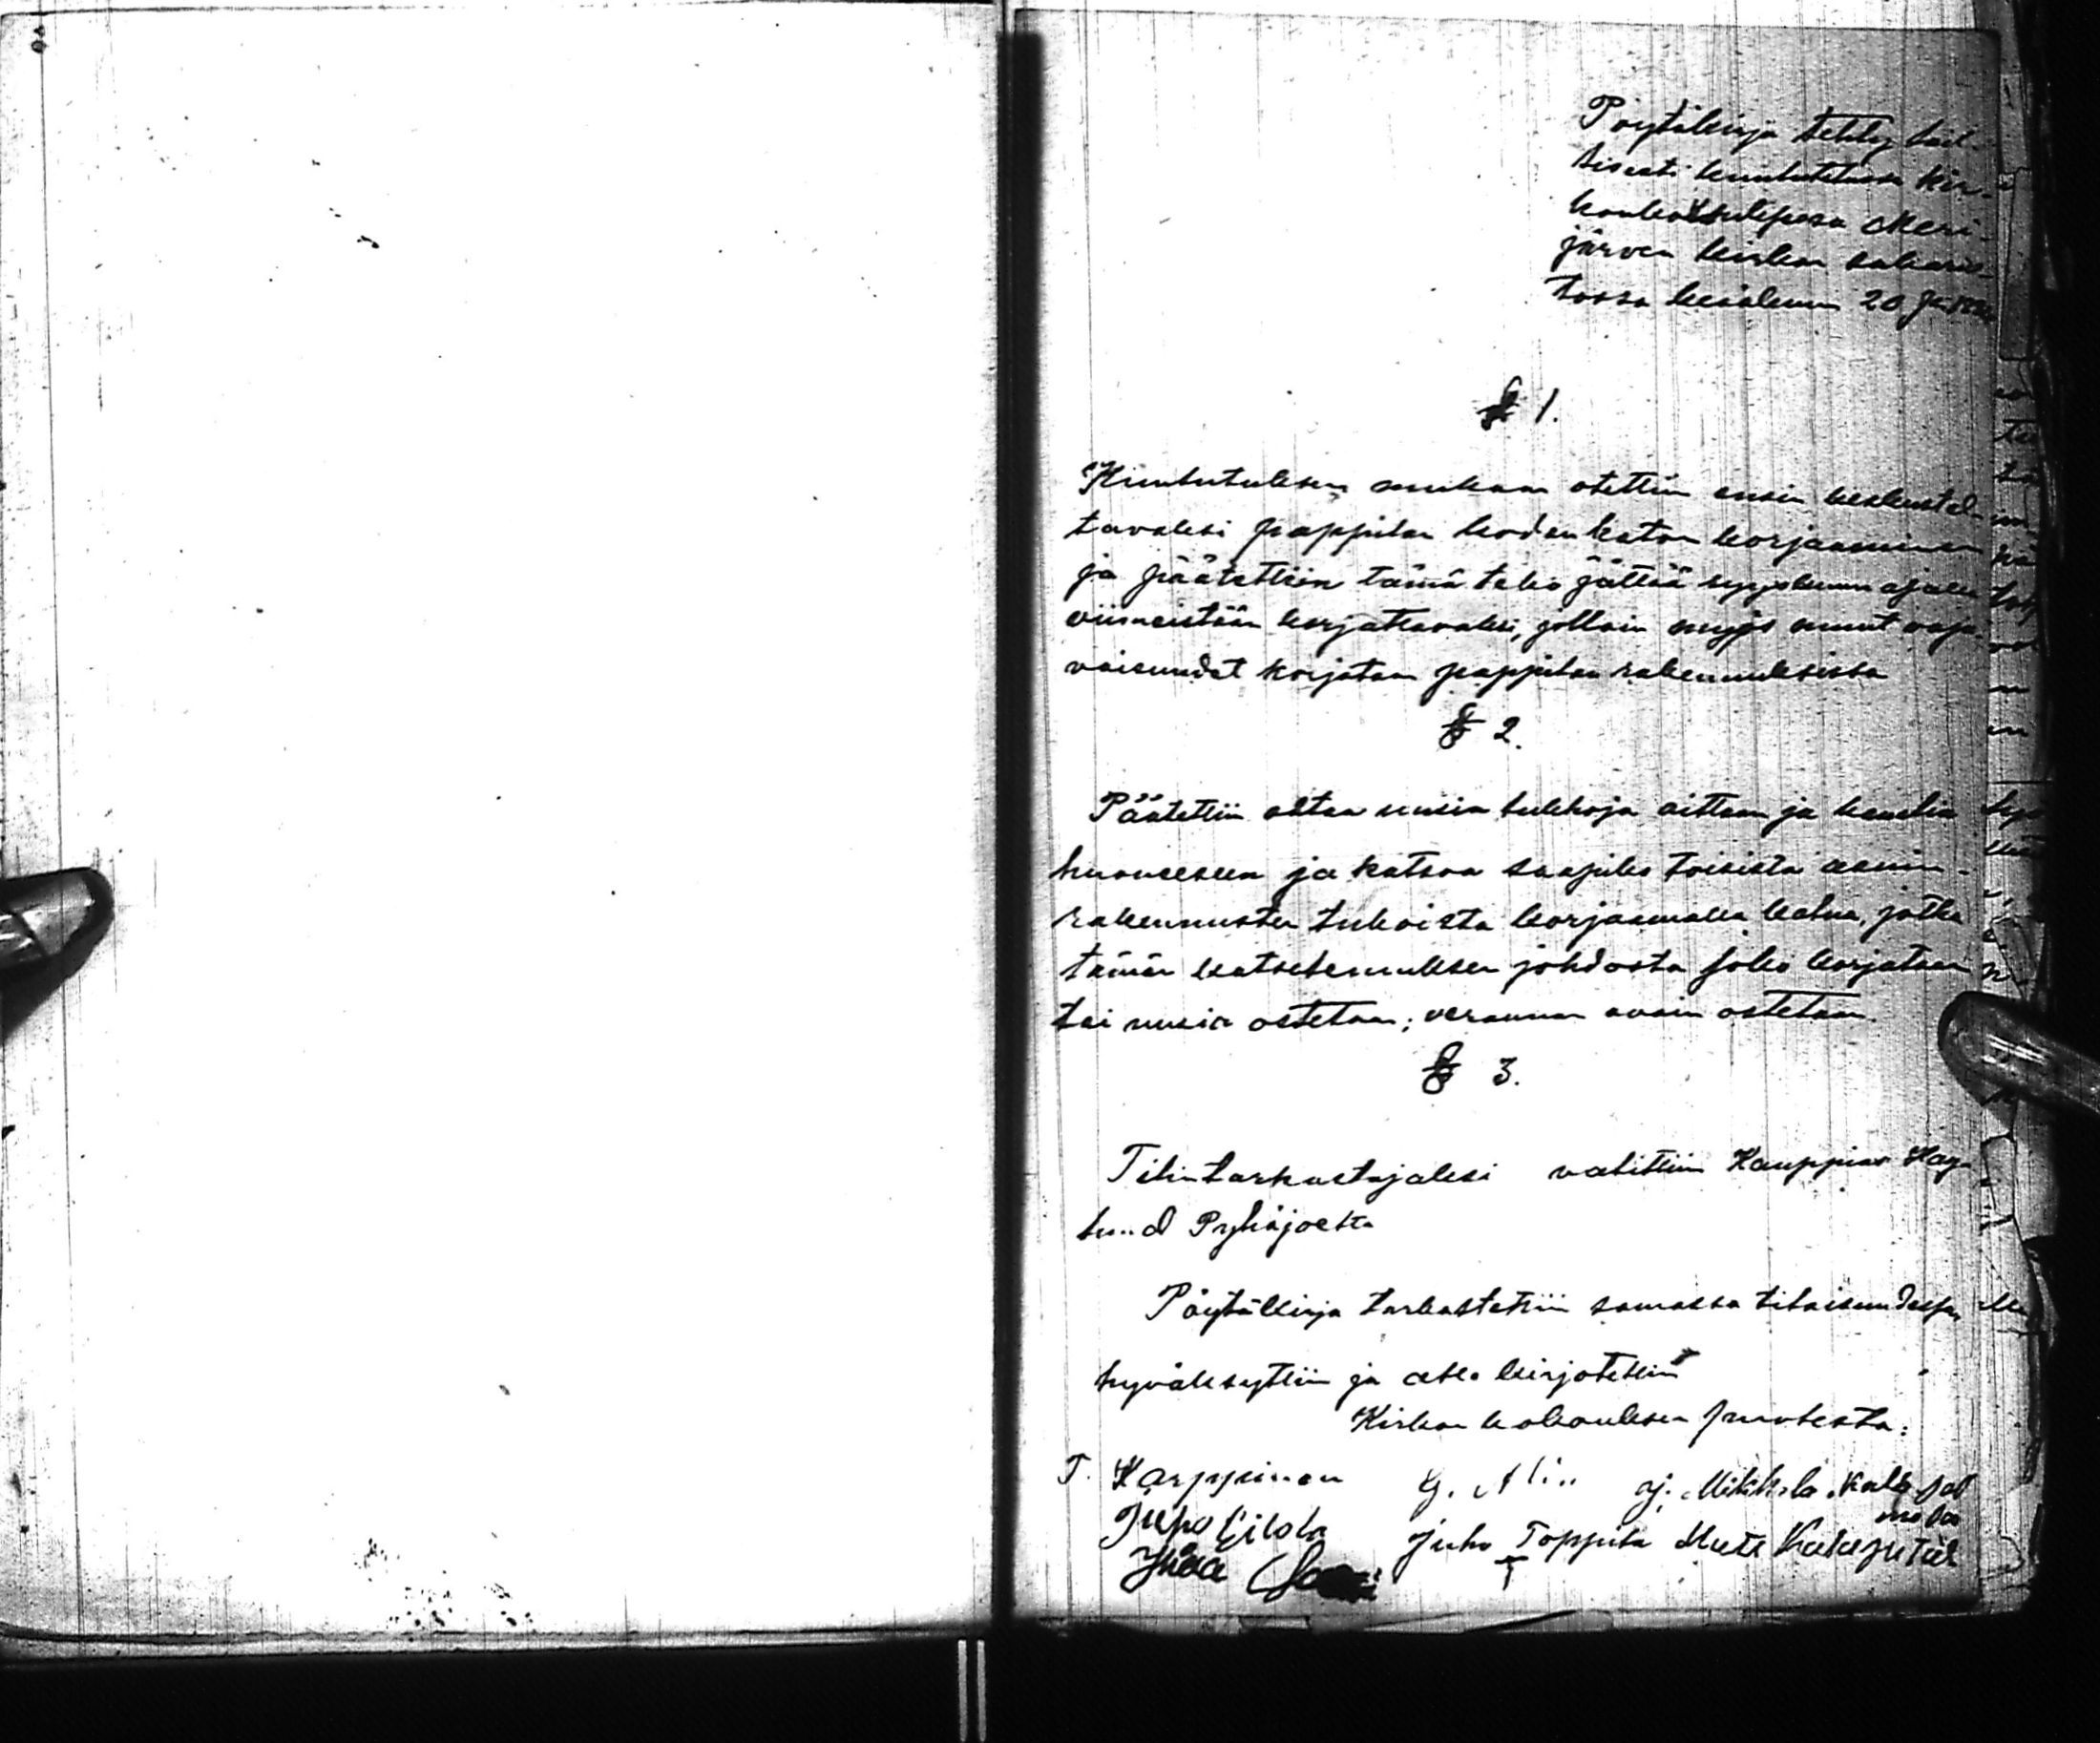 Pöytäkirja tehty lail-
lisesti kuulutetussa Kir-
konkokouksessa Meri-
järven kirkon sakaris-
tossa kesäkuun 20 p:nä
§ 1.
Kuulutuksen mukaan otettiin ensin keskustel-
tavaksi pappilan kodan katon korjaaminen
ja päätettiin tämä teko jättää syyskuun ajalla
viimeistään korjattavaksi, jolloin myös muut vaja-
vaisuudet korjataan pappilan rakennuksissa
§ 2.
Päätettiin ostaa uusia lukkoja aittaan ja kanslia
huoneeseen ja katsoa saapiko toisista asuin-
rakennusten lukoista korjaamalla kalua, jotka
tämän katselemuksen johdosta joko korjataan
tai uusia ostetaan; verannan avain ostetaan.
§ 3.
Tilintarkastajaksi valittiin Kauppias Hag-
lund Pyhäjoelta
Pöytäkirja tarkastettiin samassa tilaisuudessa,
hyväksyttiin ja alle kirjotettiin
Kirkon kokouksen puolesta:
T. Karppinen G. Alin Mikkola
Juho Eilola Juho Toppila